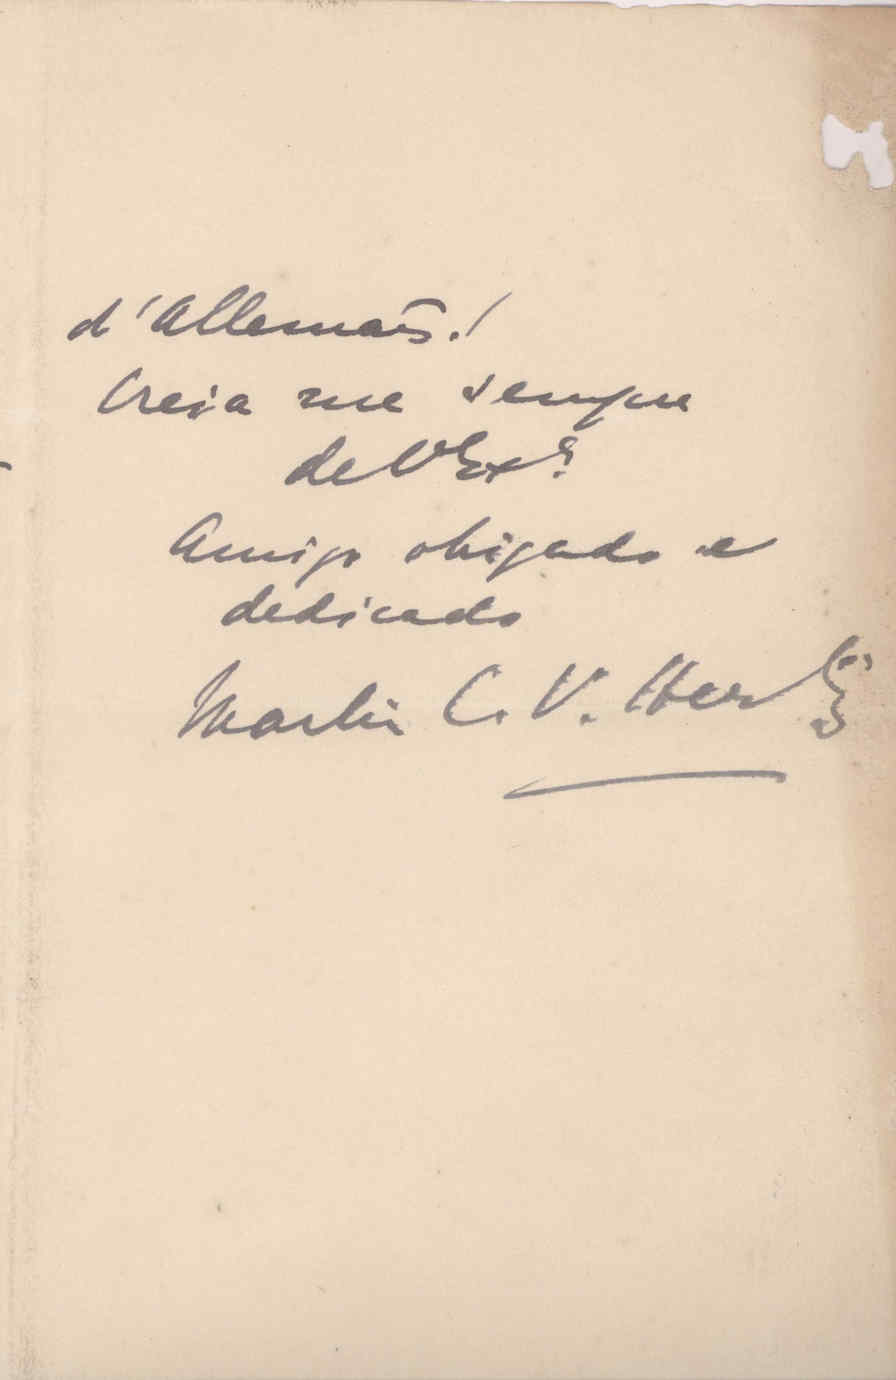 d'Allemão!
Creia me sempre
de V Exª
Amigo obrigado e
dedicado
Martin C. V.